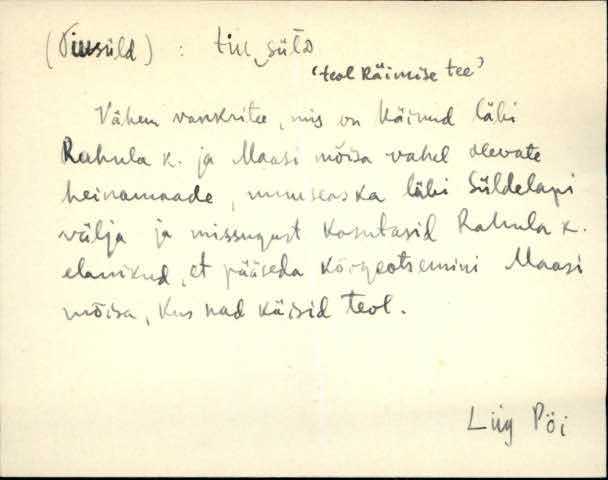 (Tiusüld) : tiu‿sülD
‘teol käimise tee’
Vähem vankritee, mis on käinud läbi
Rahula k. ja Maasi mõisa vahel olevate
heinamaade, muuseas ka läbi Süldelapi
välja ja missugust kasutasid Rahula k.
elanikud, et pääseda kõrgeotsemini Maasi
mõisa, kus nad käisid teol.
Liig Pöi